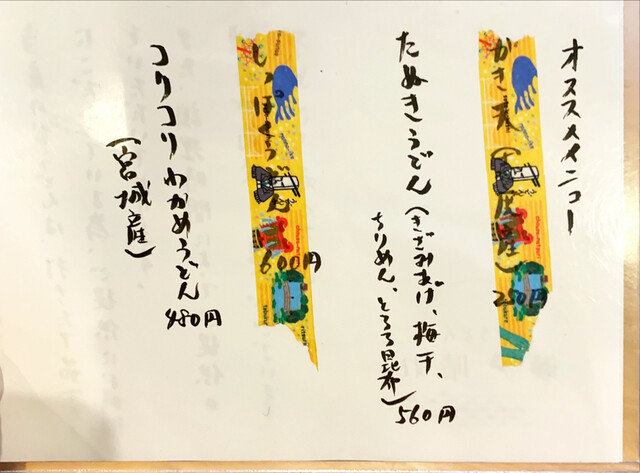 オススメメニュー
かき 産 250円
たぬきうどん(きざみあげ、梅干、
ちりめん、とろろ昆布)560円
しっぽくうどん 600円
コリコリわかめうどん
(宮城産) 480円